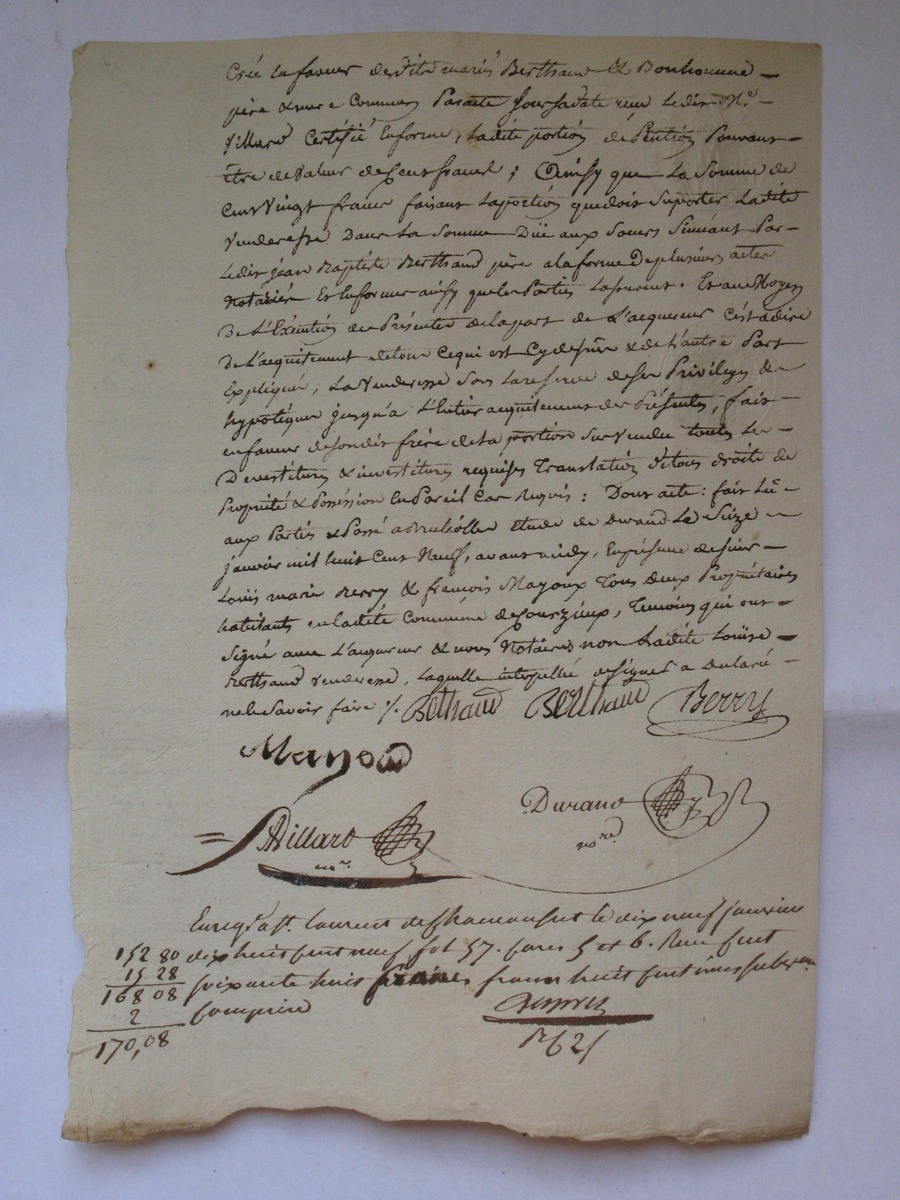 Créé en faveur desdits mariés Berthaud & Bonhomme
père & mere Communs Par acte Jour sa date reçu ledit Me
Villard Certifié en forme, ladite portion de Pention Pouvant
être de valeur de Cent francs; Ainsy que la Somme de
Cent Vingt francs faisant la portion que doit suporter ladite
Venderesse Dans la Somme Düe aux Soeurs Siméant Par
Ledit jean Baptiste Berthaud père a la forme De plusieurs actes
Notariés En forme aussy que les Parties L'assurent. Et au Moyen
De L'Exécution des Présentes de la part de L'acquereur C'est a dire
De L'acquitement de tout Ce qui est Cy dessus & de L'autre Part
Expliqué, La Venderesse Sous la reserve de ses Privileges &
hypotéques jusqu'a L'Entier acquitement des Présentes, fait
en faveur de son dit frère de la portion Sus Vendue toutes les
Devestitures & investitures requises Translation de tous droits de
Propriété & Possession En Pareil Cas Requis: Dont acte: fait Lû
aux Parties & Passé a étude de Durand Le Seize
janvier mil huit Cent Neuf, avant midy, En présence de sieurs
Louis marie Berry & francois Mayoux Tous Deux Propriétaires
habitants en ladite Commune de Courzieux, Temoins qui ont
Signé avec L'acquereur & nous Notaires non Ladite Louise
Berthaud Venderesse, laquelle interpellée de Signer a Déclaré
ne le Savoir faire ·/. Bethaud Berthaud Berry
Mayoud
Durand
nore
Villard
nore
Enregé a St. Laurent de Chamousset le dix neuf janvier
152 80 dix huit cent neuf, fol 57. cases 5 et 6. Reçu cent
15 28
168 08 soixante huit francs huit centimes subvon
2 Comprise
170,08